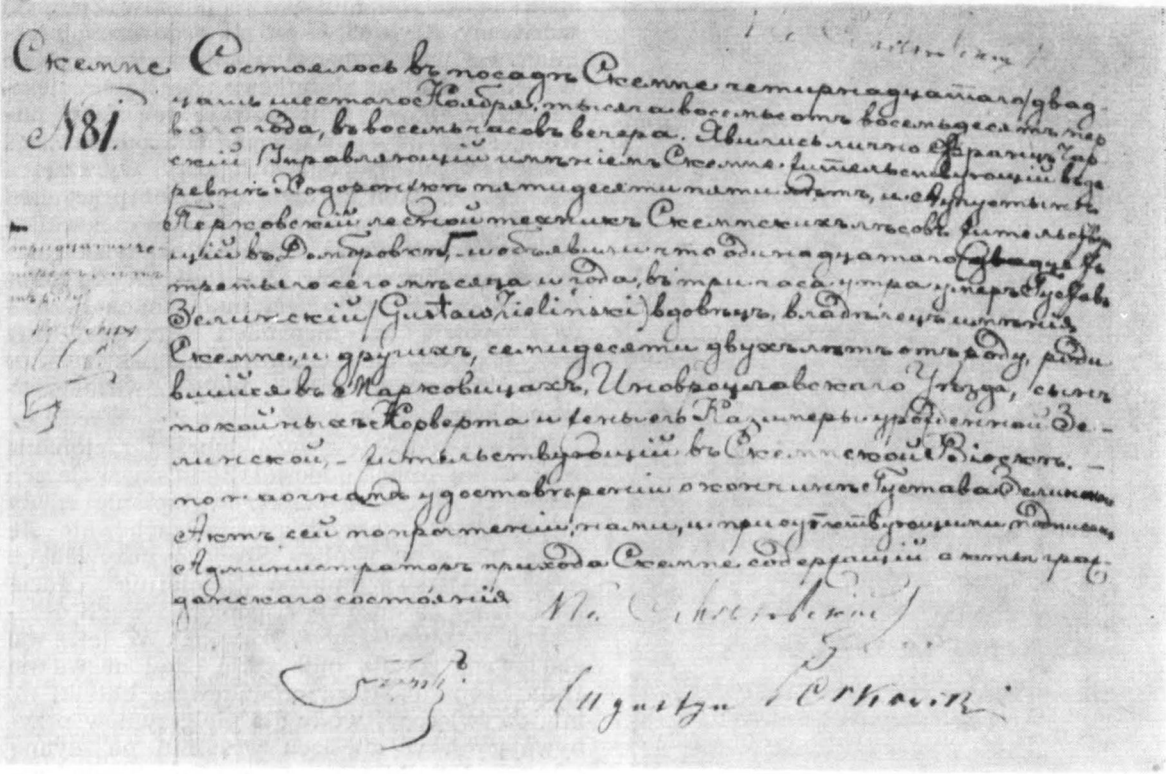 Скемпе
№81.
Состоялось въ посадѣ Скемпе четырнадцатаго/двад-
цать шестаго Ноября, тысяча восемьсотъ восемьдесятъ пер
ваго года, въ восемь часовъ вечера. Явились лично Францъ Чар
скій Управляющій имѣніемъ Скемпе жительствующій въ де
ревнѣ Ходорожкѣ пятидесяти пяти лѣтъ, и Августынъ
Перковскій лесной техникъ Скемпскихъ лѣсовъ жительству
щій въ Домбровкѣ, и объявили что одинадцатаго/двадца
третьяго сего мѣсяца и года, въ три часа утра умеръ Густавъ
Зелинскій /Gustaw Zieliński/ вдовецъ, владѣлецъ имѣнія
Скемпе, и другихъ, семидесяти двухъ лѣтъ отъ роду, роди
вшійся въ Марковицахъ, Иновроцлавскаго Уѣзда, сынъ
покойныхъ Норберта и жены его Казимеры урожденной Зе-
линской, – жительствующій въ Скемпской Віоскѣ. –
по наочномъ удостовѣреніи о кончинѣ Густава Зелинскаго
Актъ сей по прочтеніи, нами, и присутствующими подписанъ
Администраторъ прихода Скемпе содержащій акты граж-
данскаго состоянія
Augustyn Perkowski